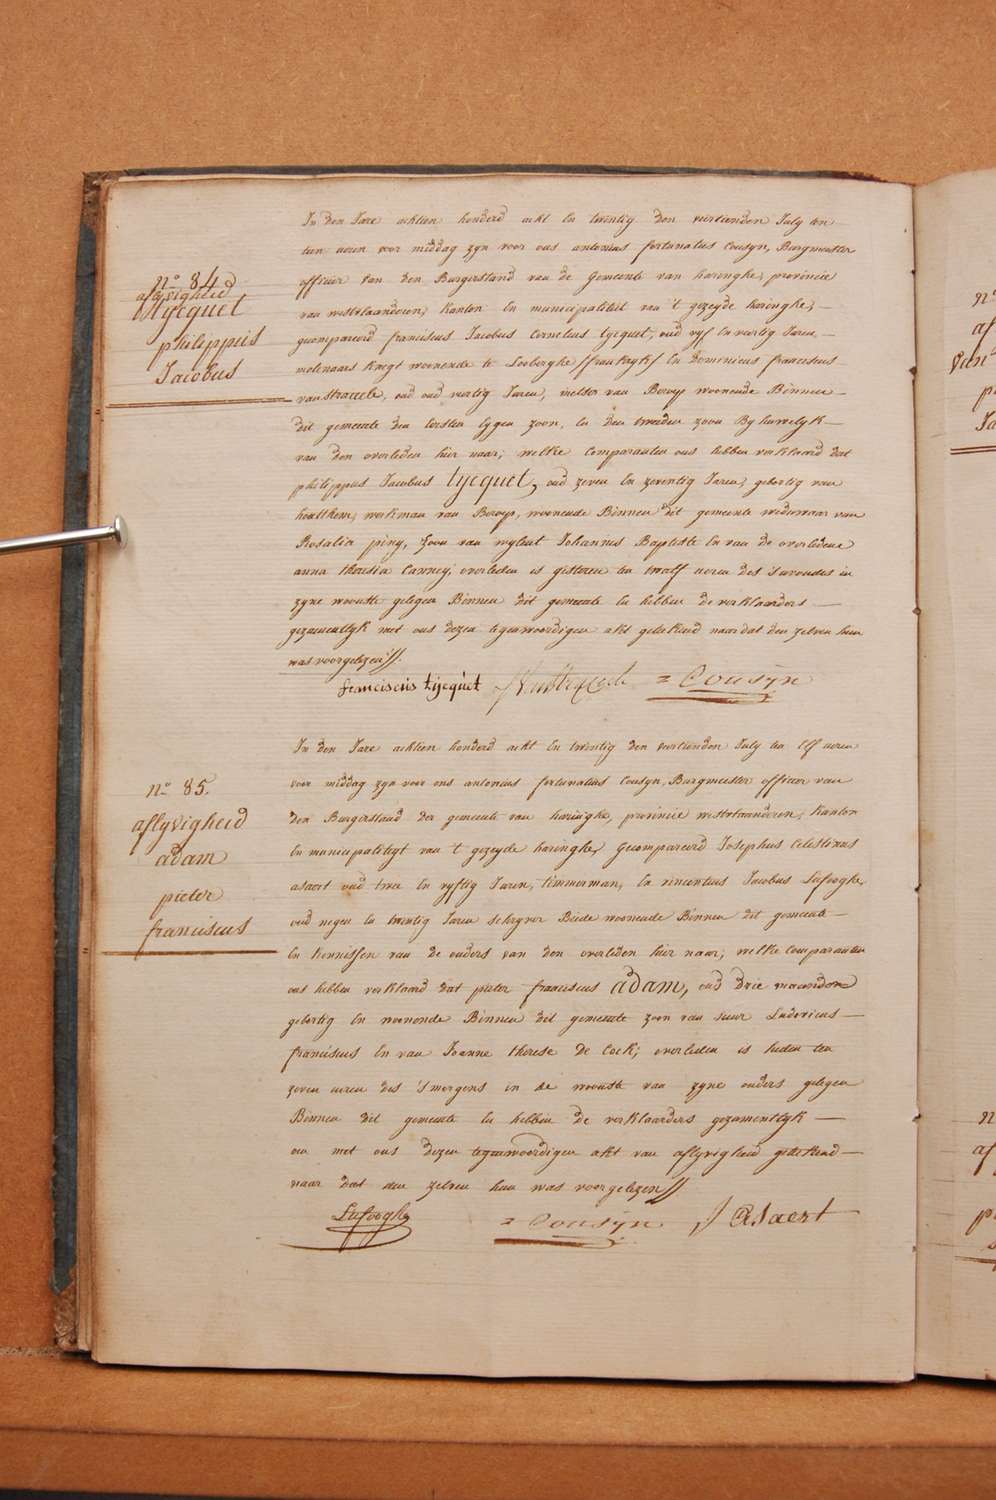 n.º 84
aflyvigheid
tycquet
philippus
Jacobus
In den Jare achtien honderd acht En twintig den viertienden July ten
tien uren voor middag zyn voor ons antonius fortunatus Cousyn, Burgmeester
officier van den Burgerstand van de gemeente van haringhe, provincie
van westvlaanderen, Kanton En municipaliteit van 't gezeyde haringhe,
gecompareerd franciscus Jacobus Cornelius tycquet, oud vyf En veertig Jaren
molenaars Knegt woonende te Looberghe /frankryk/ En Dominicus franciscus
van Straceele, oud oud veertig Jaren, vielser van Beroep woonende Binnen
dit gemeente den Eersten Eygen zoon, En den tweeden zoon By huwelyk
van den overleden hier naar; welke Comparanten ons hebben verklaard dat
philippus Jacobus tycquet, oud zeven En zeventig Jaren, geboortig van
houtkem, werkman van Beroep, woonende Binnen dit gemeente weduwaar van
Rosalia piny, zoon van wylent Johannes Baptiste En van de overledene
anna theresia Canney, overleden is gisteren ten twalf uren des s'avondts in
zyne wooniste gelegen Binnen dit gemeente En hebben de verklaarders
gezamentlyk met ons dezen tegenwoordigen akt geteekend naar dat den zelven hun
was voorgelezen //.
franciscus tycquet = Cousyn
n.º 85.
aflyvigheid
adam
pieter
franciscus
In den Jare achtien honderd acht En twintig den viertienden July ten Elf uren
voor middag zyn voor ons antonius fortunatus Cousyn, Burgmeester officier van
den Burgerstand der gemeente van haringhe, provincie westvlaanderen, Kanton
En municipaliteyt van 't gezeyde haringhe, gecompareerd Josephus Celestinus
asaert oud twee En vyftig Jaren, timmerman, En vincentius Jacobus Lafooghe
oud negen En twintig Jaren schryver Beide woonende Binnen dit gemeente
En Kennissen van de ouders van den overleden hier naar; welke Comparanten
ons hebben verklaard dat pieter franciscus adam, oud drie maanden
geboortig En woonende Binnen dit gemeente zoon van sieur Ludovicus
franciscus En van Joanne therese de Cock; overleden is heden ten
zeven uren des 'smorgens in de wooniste van zyne ouders gelegen
Binnen dit gemeente En hebben de verklaarders gezamentlyk
en met ons dezen tegenwoordigen akt van aflyvigheid geteekend
naar dat den zelven hun was voorgelezen //
Lafooghe = Cousyn J Asaert